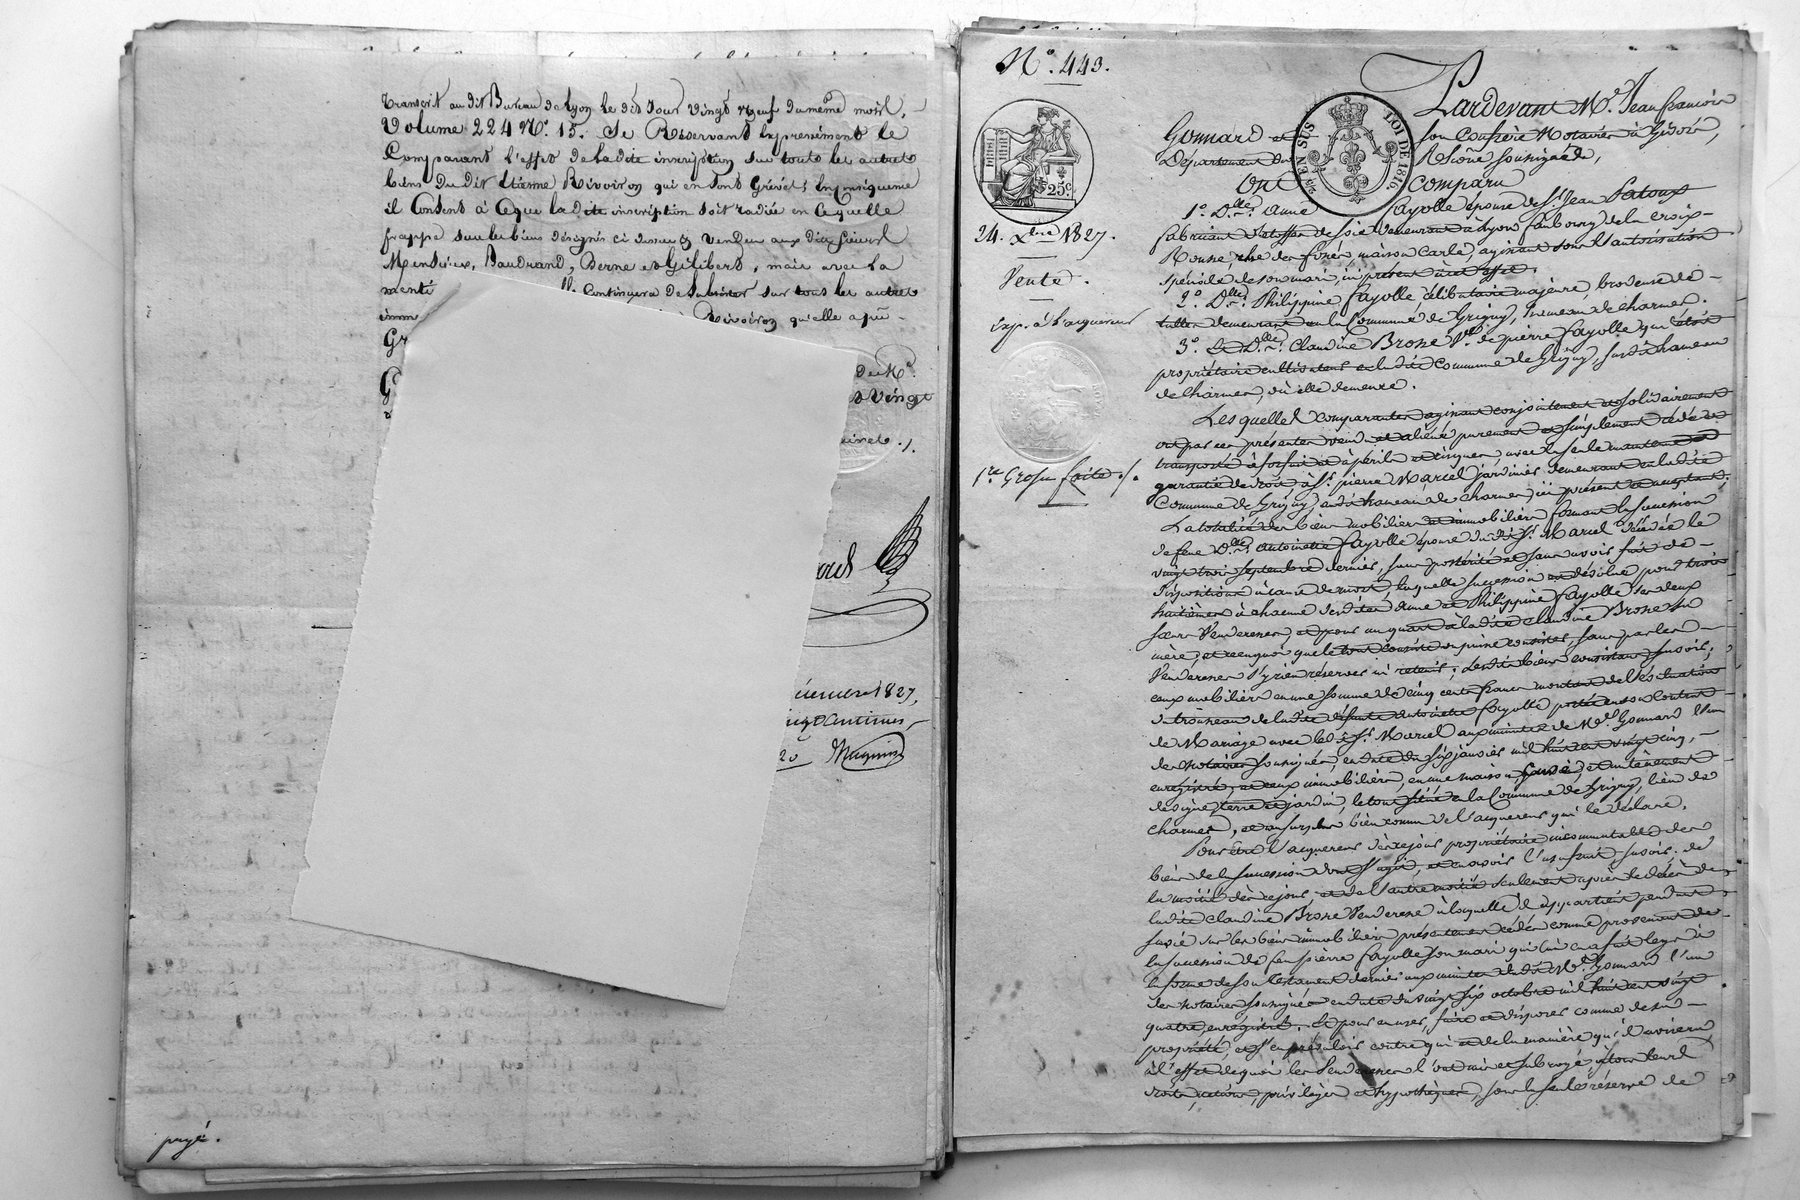 transcrit audit Bureau de Lyon le dit jour vingt neuf du même mois,
Volume 224 N.o 15. Se Réservant Expressément le
Comparant l'effet de la dite inscription sur tous les autres
biens du dit Etienne Rivoiron qui en sont Grévés; En Conséquence
il Consent à ce que la dite inscription soit radiée en ce qu'elle
frappe sur les biens désignés ci dessus et vendus aux dits sieurs
Baudrand, Berne et Gilibert, mais avec la
Continuera de subsister sur tous les autres
Rivoiron qu'elle a pu
Gr
de M.e
Vingt
décembre 1827,
vingt Centimes
payé.
N.o 443.
25 c.
EN SUS
LOI DE 1816.
24. Xbre 1827.
Vente.
Exp. à l'acquereur
1.re Grosse faite ./.
Pardevant M.e Jean françois
Gonnard et son Confrère Notaires à Givors,
Département du Rhône soussignés,
Ont Comparu
1.o D.lle anne fayolle épouse de S.r Jean Fatoux
fabricant d'étoffes de soie demeurant à Lyon faubourg de la Croix-
Rousse, rue des fossés, maison Carle, agissant sous l'autorisation
spéciale de son mari, ici présent à cet effet.
2.o D.lle Philippine fayolle célibataire majeure, brodeuse de
tulles demeurant en la Commune de Grigny, hameau de charmes.
3.o Et D.lle Claudine Brosse V.ve de pierre fayolle qui étoit
propriétaire cultivateur en ladite Commune de Grigny, susdit hameau
de charmes, où elle demeure.
Lesquelles comparantes agissant conjointement et solidairement
ont par ces présentes vendu et aliéné purement et simplement cédé et
transporté à forfait et à périls et risques, avec la seule maintenue et
garantie de droit à S.r pierre Marcel jardinier demeurant en la dite
Commune de Grigny, susdit hameau de charmes, ici présent et acceptant:
La totalité des biens mobiliers et immobiliers formant la succession
de feue D.lle antoinette fayolle épouse dudit S.r Marcel décédée le
vingt trois septembre dernier, sans postérité et sans avoir fait de
dispositions à cause de mort, laquelle succession est dévolue pour trois
huitièmes à chacune desdites anne et Philippine fayolle ses deux
sœurs Venderesses, et pour un quart à la dite claudine Brosse sa
mère; et en quoi que le tout consiste et puisse consister, sans par les
Venderesses s'y rien réserver ni retenir; lesdits biens consistant savoir;
ceux mobiliers en une somme de cinq cents francs montant de l'estimation
du trousseau de la dite défunte antoinette fayolle portée en son contrat
de Mariage avec led. S.r Marcel aux minutes de M.e Gonnard l'un
des notaires soussignés, en date du six janvier mil huit cent vingt cinq,
enregistré; et ceux immobiliers, en une maison, et un tènement
de vigne terre et jardin, le tout situé en la Commune de Grigny, lieu de
charmes, et au surplus bien connu de l'acquereur qui le déclare.
Pour être l'acquereur dès ce jour propriétaire incommutable des
biens de la succession dont s'agit, et en avoir l'usufruit savoir: de
la moitié dès ce jour, et de l'autre moitié seulement après le décès de
ladite claudine Brosse Venderesse à laquelle il appartient pendant
sa vie sur les biens immobiliers présentement cédés comme provenant de
la succession de feu pierre fayolle son mari qui lui en a fait legs à
la forme de son testament dernier aux minutes dudit M.e Gonnard l'un
des notaires soussignés en date du vingt six octobre mil huit cent vingt
quatre, enregistré. Et pour en user, faire et disposer comme de sa
propriété, et s'en prévaloir contre qui et de la manière qu'il avisera
à l'effet de quoi les Venderesses l'ont mis et subrogé, à tous leurs
droits, actions, privilèges et hypothèques, sous la seule réserve de